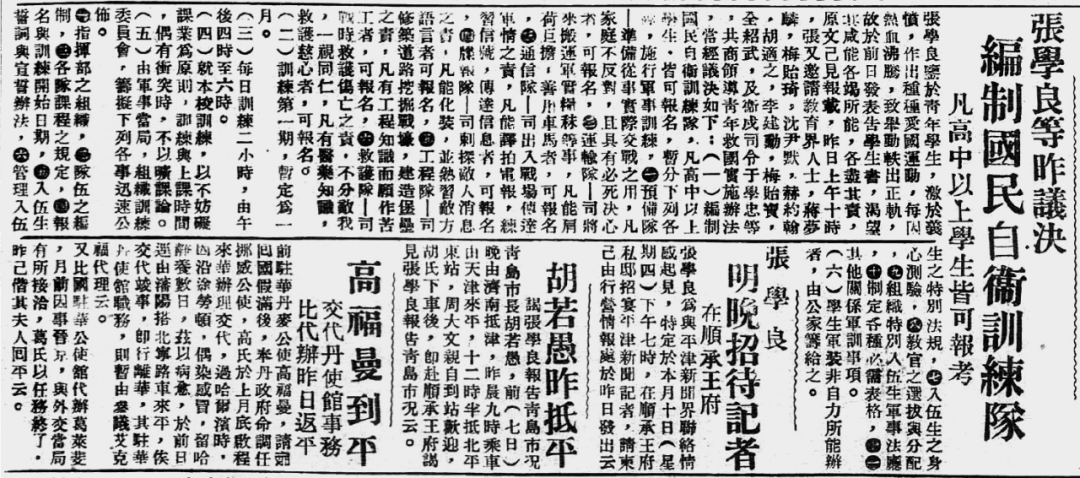 張學良等昨議決
編制國民自衛訓練隊
凡高中以上學生皆可報考
張學良鑒於青年學生,激於義
憤,作出種種愛國運動,每因
熱血沸騰,致舉動軼出正軌,
故於前日發表告學生書,渴望
其咸能各竭所能,各盡其責,
原文已見報載,昨日上午十時
,張又邀請教育界人士,蔣夢
麟,梅貽琦,沈尹默,蘇約翰
,胡適之,李建勳,梅貽寶,
全紹武,及衛戍司令于學忠等
,共商領導青年救國實施辦法
,當經議決如下:(一)編制
國民自衛訓練隊,凡高中以上
學生,皆可報名,暫分下列各
隊,施行軍事訓練,❶預備隊
—準備從事實際交戰之用,凡
家庭不反對,且具有必死決心
者,可報名,❷運輸隊—司將
來搬運軍實糧秣等事,凡能肩
荷巨擔,善用車馬者,可報名
,❸通信隊—司出入戰場傳達
軍情之責,凡能譯拍電報,練
習信號,傳達信息者,可報名
,❹諜報隊—司刺探敵人消息
之責,凡能化裝,並熟習敵方
語言者可報名,❺工程隊—司
修築道路挖掘戰壕,建造堡壘
之責,凡有工程知識而願作苦
工者,可報名,❻救護隊—司
戰時救護傷亡之責,不分敵我
,一視同仁,凡有醫藥知識,
救護慈心者,可報名。
(二)訓練第一期,暫定為一
月。
(三)每日訓練二小時,由午
後四時至六時。
(四)就本校訓練,以不妨礙
課業為原則,訓練與上課時間
,偶有衝突時,不以曠課論。
(五)由軍事當局,組織訓練
委員會,籌擬下列各事迅速公
佈。
❶指揮部之組織,❷隊伍之編
制,❸各隊課程之規定,❹報
名與訓練開始日期,❺入伍生
誓詞與宣誓辦法,❻管理入伍
生之特別法規,❼入伍生之身
心測驗,❽教官之選拔與分配
,❾組織特別入伍生軍事法廳
,❿制定各種必需表格,⓫
其他關係軍訓事項。
(六)學生軍裝非自力所能辦
者,由公家籌給之。
張學良
明晚招待記者
在順承王府
張學良為與平津新聞界聯絡情
感起見,特定於本月十日(星
期四)下午七時,在順承王府
私邸招宴平津新聞記者,請柬
已由行營情報處於昨日發出云
胡若愚昨抵平
謁張學良報告青島市况
青島市長胡若愚,前(七日)
晚由濟南抵津,昨晨九時乘車
由天津來平,十二時半抵北平
東站,周大文親自到站歡迎,
胡氏下車後,即赴順承王府謁
見張學良報告青島市况云。
高福曼到平
交代丹使館事務
比代辦昨日返平
前駐華丹麥公使高福曼,請假
回國假滿後,奉丹政府命調任
挪威公使,高氏於上月底啟程
來華辦理交代,過哈爾濱時,
因沿途勞頓,偶染感冒,留哈
靜養數日,茲以病愈,於前日
逕由瀋陽搭北寧路車來平,俟
交代竣事,即行離華,其駐華
丹使館職務,則暫由參議艾克
福代理云。
又比國駐華公使館代辦葛萊斐
,月前因事晉京,與外交當局
有所接洽,葛氏以任務終了,
昨已偕其夫人回平云。